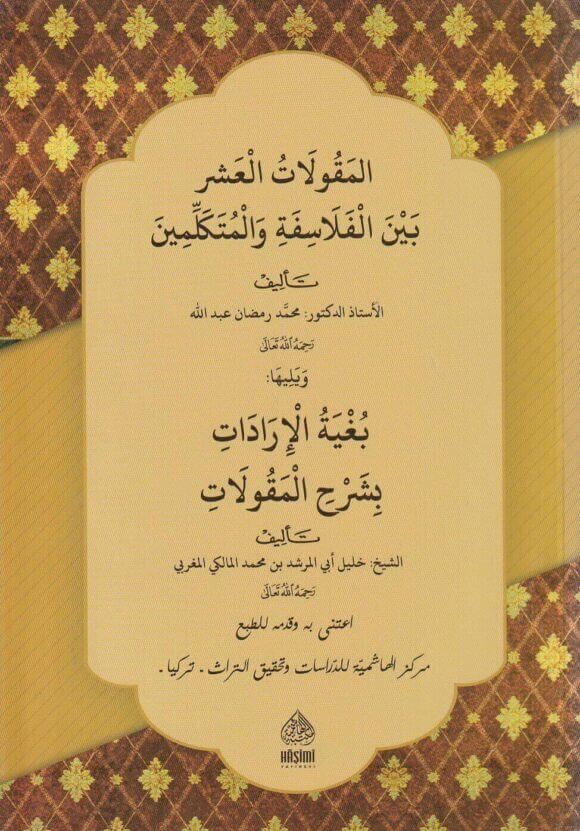 المَقُولَاتُ الْعَشر
بَيْنَ الْفَلَاسِفَةِ وَالْمُتَكَلِّمِينَ
تأليف
الأستاذ الدكتور: محمَّد رمضان عبد الله
رَحِمَهُ اللهُ تَعَالَى
وَيَلِيهَا:
بُغْيَةُ الْإِرَادَاتِ
بِشَرْحِ الْمَقُولَاتِ
تأليف
الشيخ: خليل أبي المرشد بن محمد المالكي المغربي
رَحِمَهُ اللهُ تَعَالَى
اعتنى به وقدمه للطبع
مركز الهاشميّة للدّراسات وتحقيق التراث - تركيا -
HÂŞİMÎ
YAYINEVİ